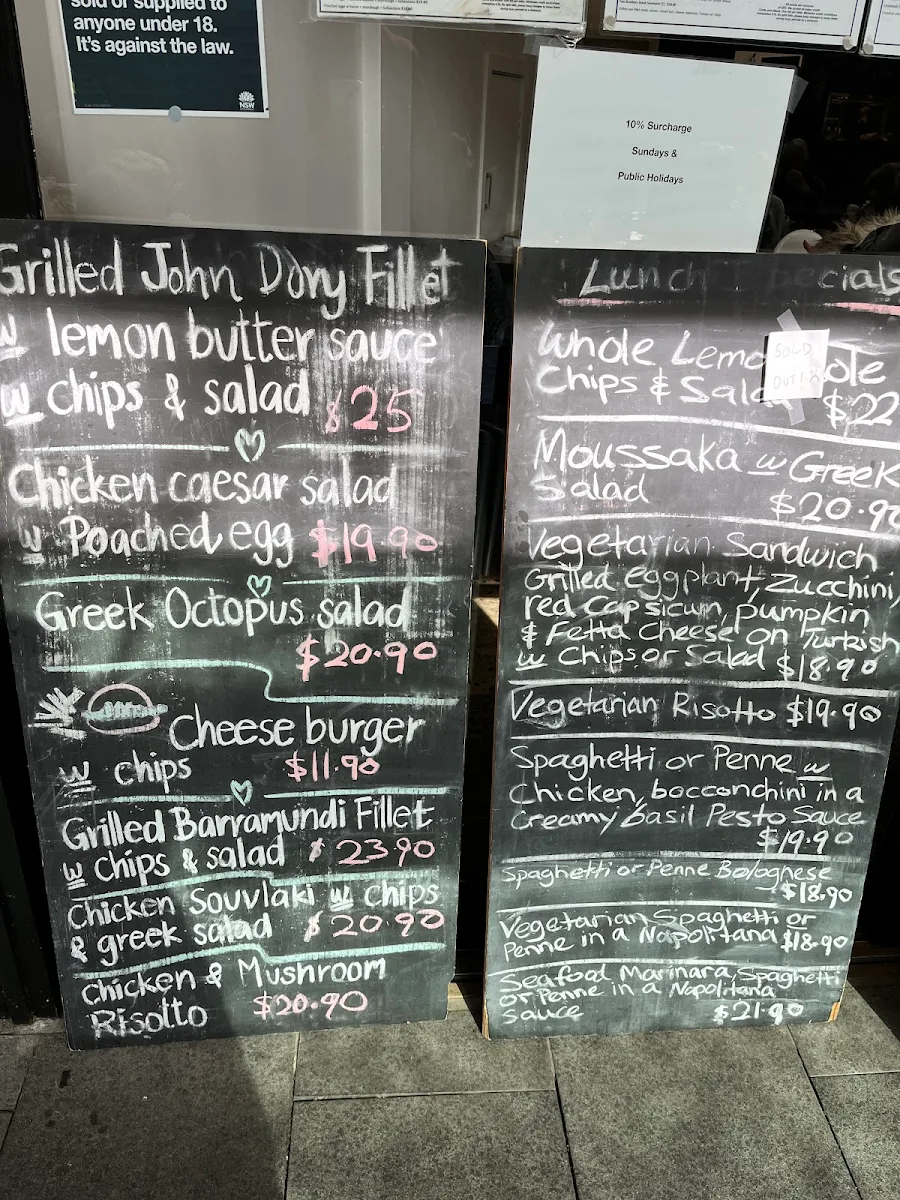 sold or supplied to
anyone under 18.
It's against the law.
NSW
10% Surcharge
Sundays &
Public Holidays
Grilled John Dory Fillet
w lemon butter sauce
w chips & salad $25
Chicken caesar salad
w Poached egg $19.90
Greek Octopus salad
$20.90
Cheese burger
w chips $11.90
Grilled Barramundi Fillet
w chips & salad $23.90
Chicken Souvlaki w chips
& greek salad $20.90
Chicken & Mushroom
Risotto $20.90
Lunch ecials
Whole Lemo ole
Chips & Sala $22
SOLD
OUT!
Moussaka w Greek
Salad $20.90
Vegetarian Sandwich
Grilled eggplant, Zucchini,
red capsicum, pumpkin
& Fetta Cheese on Turkish
w Chips or Salad $18.90
Vegetarian Risotto $19.90
Spaghetti or Penne w
Chicken, bocconchini in a
Creamy basil Pesto Sauce
$19.90
Spaghetti or Penne Bolognese
$18.90
Vegetarian Spaghetti or
Penne in a Napolitana $18.90
Seafood Marinara Spaghetti
or Penne in a Napolitana
Sauce $21.90